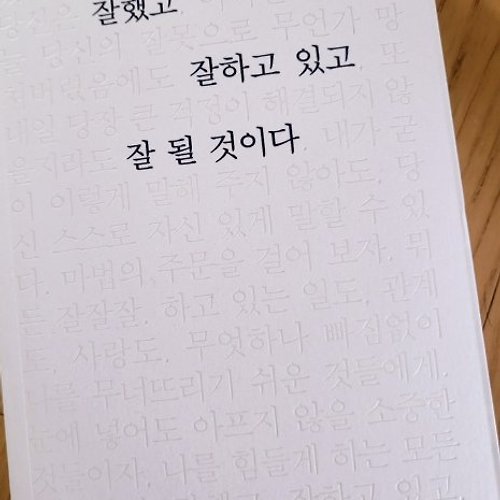 잘했고
잘하고 있고
당신의 잘못으로 무언가 망
또
내일 당장 큰 걱정이 해결되지 않
잘 될 것이다, 내가 굳
이 이렇게 말해 주지 않아도, 당
신 스스로 자신 있게 말할 수 있
다. 마법의 주문을 걸어 보자. 뭐
든 잘잘잘. 하고 있는 일도, 관계
도, 사랑도. 무엇하나 빠짐없이
나를 무너뜨리기 쉬운 것들에게.
눈에 넣어도 아프지 않을 소중한
것들이자, 나를 힘들게 하는 모든
잘하고 있